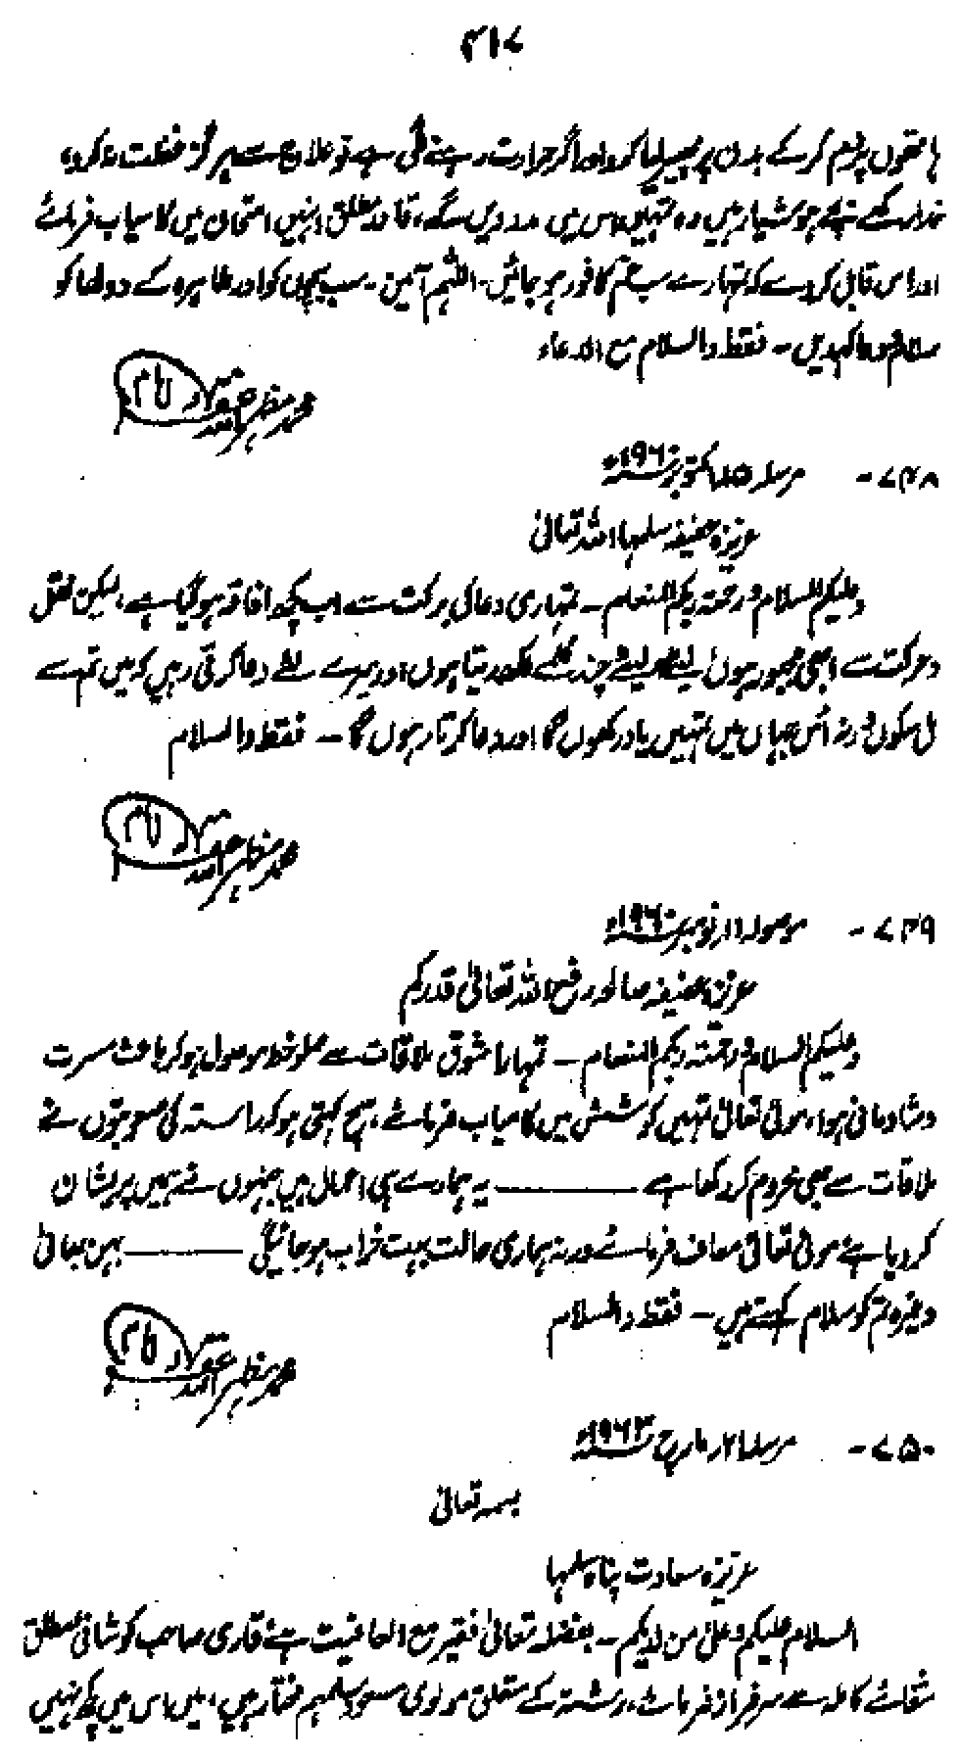 ۴۱۷
ہاتھوں پر دم کرکے بدن پر پھیر لیا کرو اور اگر حرارت رہنے لگی ہے تو علاج سے ہرگز غفلت نہ کرو،
خدا رکھے بچے ہوشیار ہیں وہ تمہیں اس میں مدد دیں گے، قادر مطلق انہیں امتحان میں کامیاب فرمائے
اور اس قابل کر دے کہ تمہارے سب غم کافور ہو جائیں۔ اللّٰھم آمین۔ سب بچوں کو اور طاہرہ کے دولھا کو
سلام و دعا کہدیں۔ فقط والسلام مع الدعاء
محمد مظہر اللہ غفرلہ امام
۷۴۸۔ مرسلہ ۱۵ اکتوبر ۱۹۶۰ء
عزیزہ عفیفہ سلمہا اللہ تعالیٰ
وعلیکم السلام و رحمۃ ربکم المنعام۔ تمہاری دعا کی برکت سے اب کچھ افاقہ ہو گیا ہے، لیکن نقل
و حرکت سے ابھی مجبور ہوں لیٹے لیٹے چند کلمے لکھ دیتا ہوں اور میرے لئے دعا کرتی رہیں کہ میں تم سے
مل سکوں ورنہ اُس جہاں میں تمہیں یاد رکھوں گا اور دعا کرتا رہوں گا۔ فقط والسلام
محمد مظہر اللہ غفرلہ امام
۷۴۹۔ موصولہ ۱۱ نومبر ۱۹۶۰ء
عزیزہ عفیفہ صالحہ رفع اللہ تعالیٰ قدرکم
وعلیکم السلام و رحمۃ ربکم المنعام۔ تمہارا شوق ملاقات سے مملو خط موصول ہو کر باعث مسرت
و شادمانی ہوا، مولیٰ تعالیٰ تمہیں کوشش میں کامیاب فرمائے، سچ کہتی ہو کہ راستہ کی صعوبتوں نے
ملاقات سے بھی محروم کر رکھا ہے ——— یہ ہمارے ہی اعمال ہیں جنہوں نے ہمیں پریشان
کر دیا ہے مولیٰ تعالیٰ معاف فرمائے ورنہ ہماری حالت بہت خراب ہو جائیگی ——— بہن بھائی
وغیرہ تم کو سلام کہتے ہیں۔ فقط والسلام
محمد مظہر اللہ غفرلہ امام
۷۵۰۔ مرسلہ ۲۱ مارچ ۱۹۶۳ء
بسمہ تعالیٰ
عزیزہ سعادت پناہ سلمہا
السلام علیکم و علیٰ من لدیکم۔ بفضلہ تعالیٰ فقیر مع العافیت ہے قاری صاحب کو شافی مطلق
شفائے کاملہ سے سرفراز فرمائے، رشتہ کے متعلق مولوی مسعود سلمہم مختار ہیں، میں اس میں کچھ نہیں